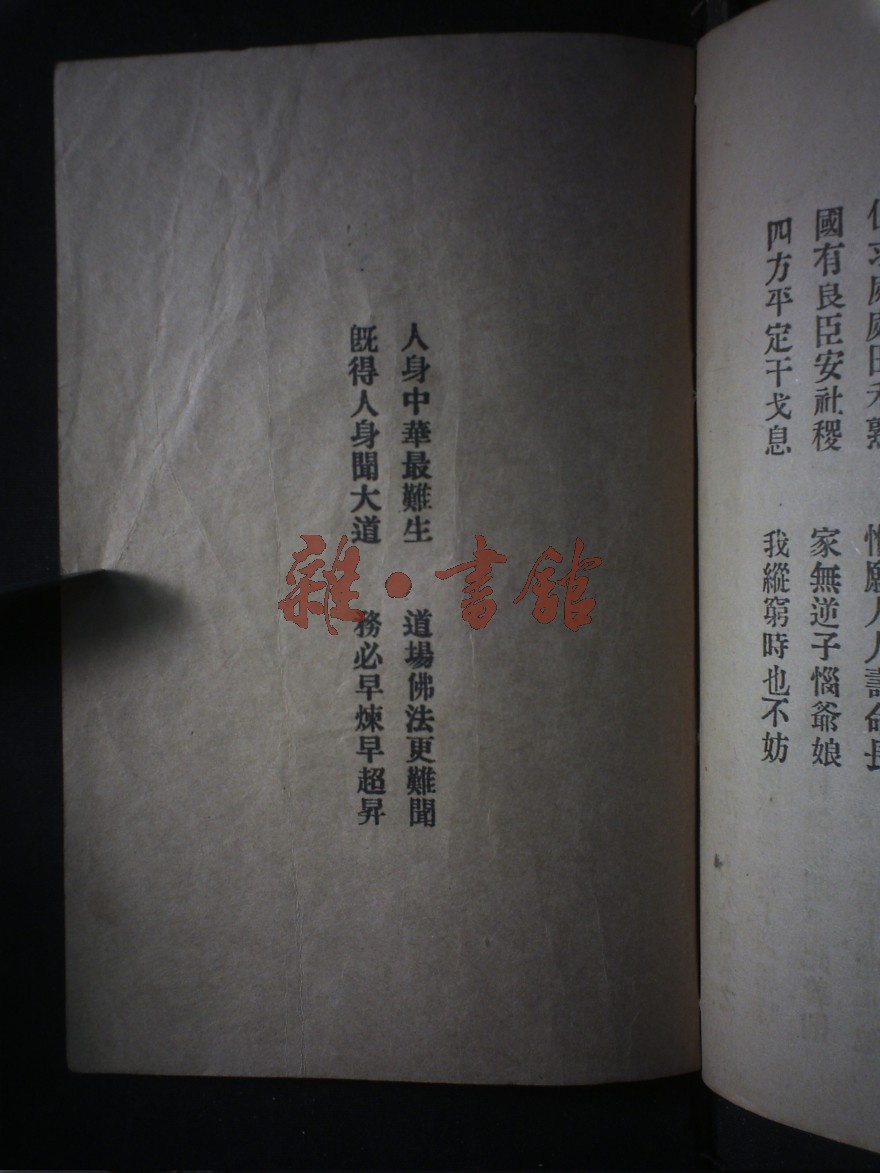 但求處處田禾熟　惟願人人壽命長
國有良臣安社稷　家無逆子惱爺娘
四方平定干戈息　我縱窮時也不妨
人身中華最難生　道場佛法更難聞
既得人身聞大道　務必早煉早超昇
雜·書館